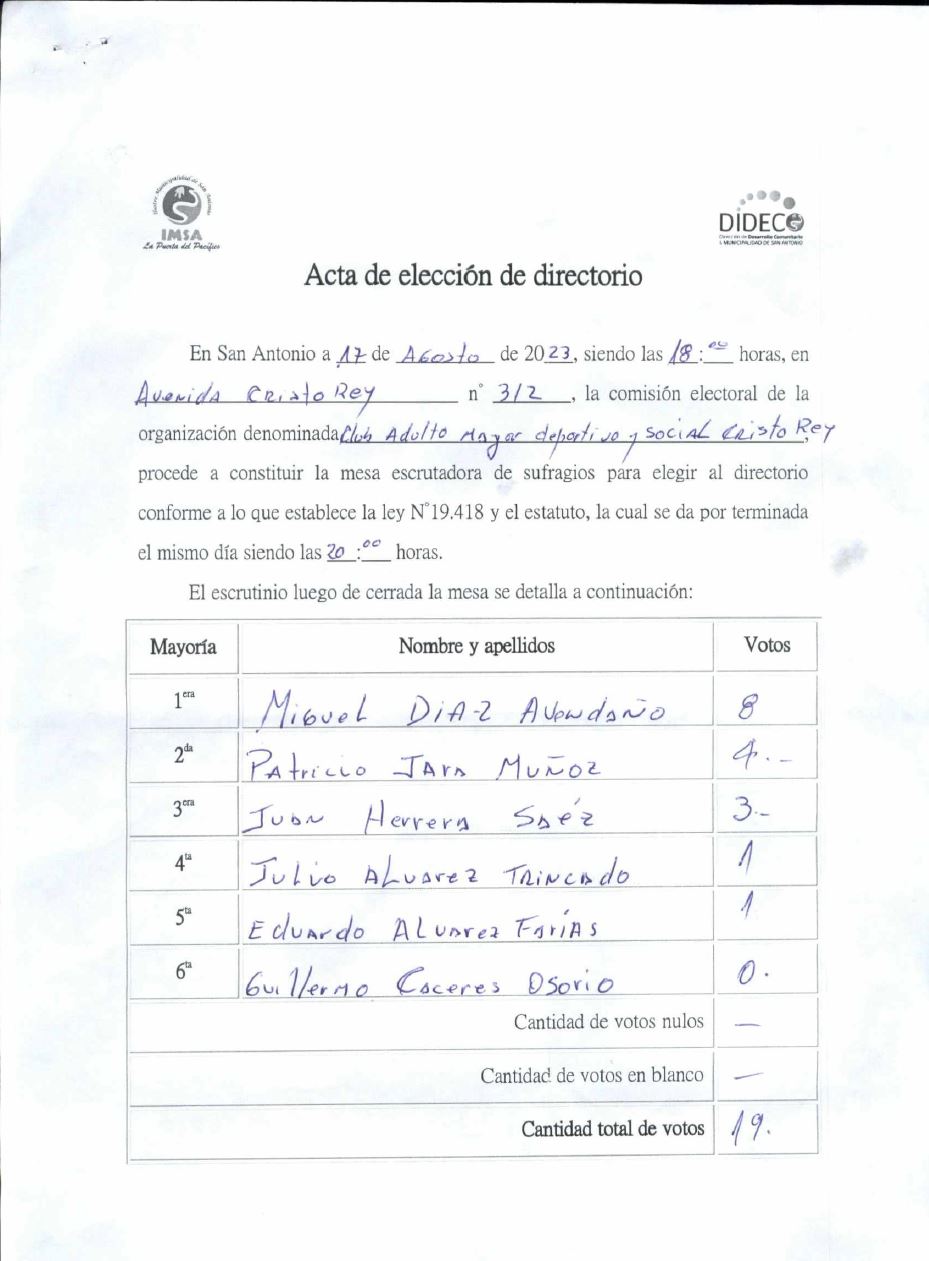 Ilustre Municipalidad de San Antonio
IMSA
La Puerta del Pacífico
DIDECO
Dirección de Desarrollo Comunitario
I. MUNICIPALIDAD DE SAN ANTONIO
Acta de elección de directorio
En San Antonio a 17 de Agosto de 2023, siendo las 18:00 horas, en
Avenida Cristo Rey n° 312, la comisión electoral de la
organización denominada Club Adulto Mayor deportivo y social Cristo Rey,
procede a constituir la mesa escrutadora de sufragios para elegir al directorio
conforme a lo que establece la ley N°19.418 y el estatuto, la cual se da por terminada
el mismo día siendo las 20:00 horas.
El escrutinio luego de cerrada la mesa se detalla a continuación:
Mayoría Nombre y apellidos Votos
1era Miguel Diaz Avendaño 8
2da Patricio Jara Muñoz 4.-
3era Juan Herrera Saéz 3.-
4ta Julio Alvarez Trincado 1
5ta Eduardo Alvarez Farías 1
6ta Guillermo Caceres Osorio 0.
Cantidad de votos nulos —
Cantidad de votos en blanco —
Cantidad total de votos 19.